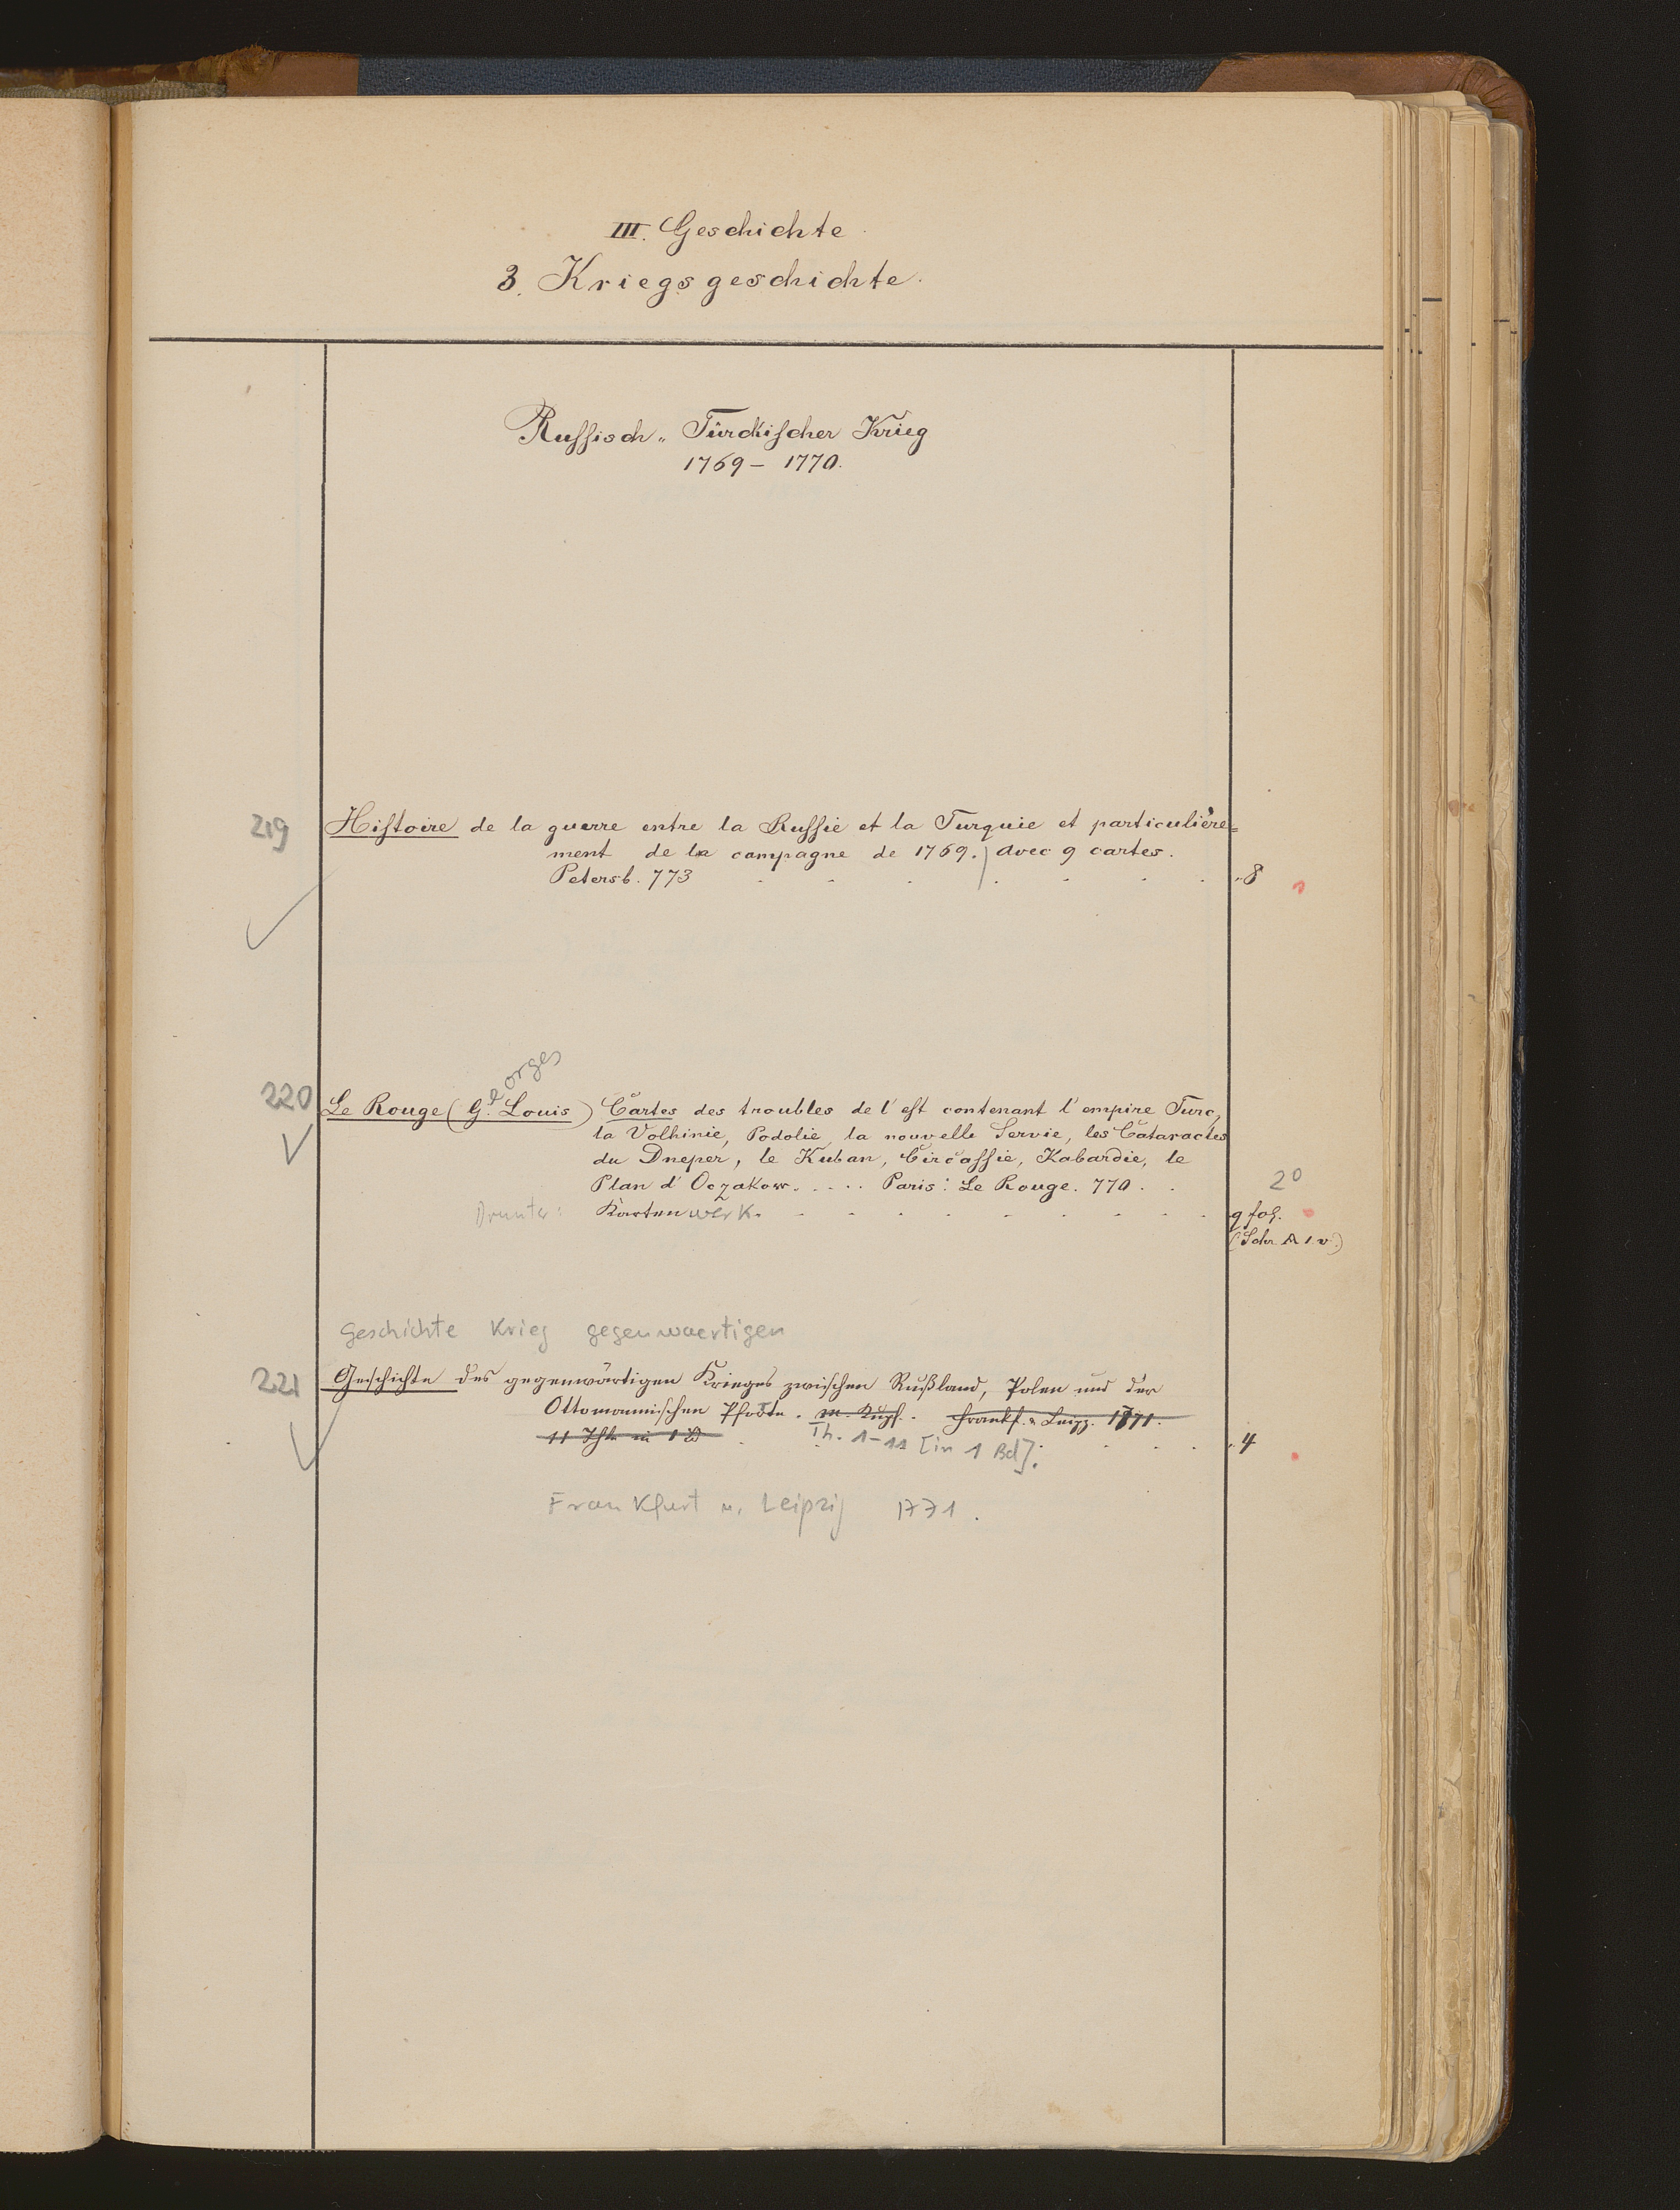 III. Geschichte
3. Kriegsgeschichte.
Russisch-Türckischer Krieg
1769 – 1770.
219 Histoire de la guerre entre la Russie et la Turquie et particulière-
ment de la campagne de 1769. avec 9 cartes.
Petersb. 773 . . . . . . . 8
orges
220 Le Rouge (Ge. Louis) Cartes des troubles de l'est contenant l'empire Turc,
la Volhinie, Podolie, la nouvelle Servie, les Cataractes
du Dneper, le Kuban, Circassie, Kabardie, le
Plan d'Oczakow. . . . . Paris: Le Rouge. 770. . 2°
Drunter: Kartenwerk. . . . . . . . . q fol.
(Schr. A 1. v.)
Geschichte Krieg gegenwaertigen
221 Geschichte des gegenwärtigen Krieges zwischen Rußland, Polen und der
Ottomannischen Pforte. m. Kupf. Frankf. u. Leipz. 1771.
11 Thle in 1 Bd Th. 1-11 [in 1 Bd]. . . . 4
Frankfurt u. Leipzig 1771.